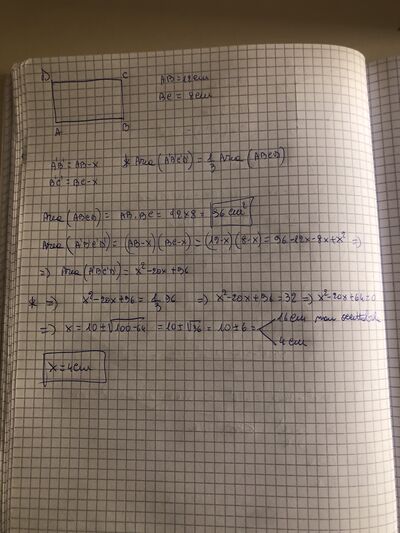 D C
AB = 12 cm
BC = 8 cm
A B
A'B' = AB-x * Area (A'B'C'D) = 1/3 Area (ABCD)
B'C' = BC-x
Area (ABCD) = AB . BC = 12 x 8 = 96 cm²
Area (A'B'C'D) = (AB-x)(BC-x) = (12-x)(8-x) = 96-12x-8x+x² =>
=> Area (A'B'C'D) = x²-20x+96
* => x²-20x+96 = 1/3 96 => x²-20x+96 = 32 => x²-20x+64=0
=> x = 10±√100-64 = 10±√36 = 10±6 = 16 cm non
4 cm
x=4cm